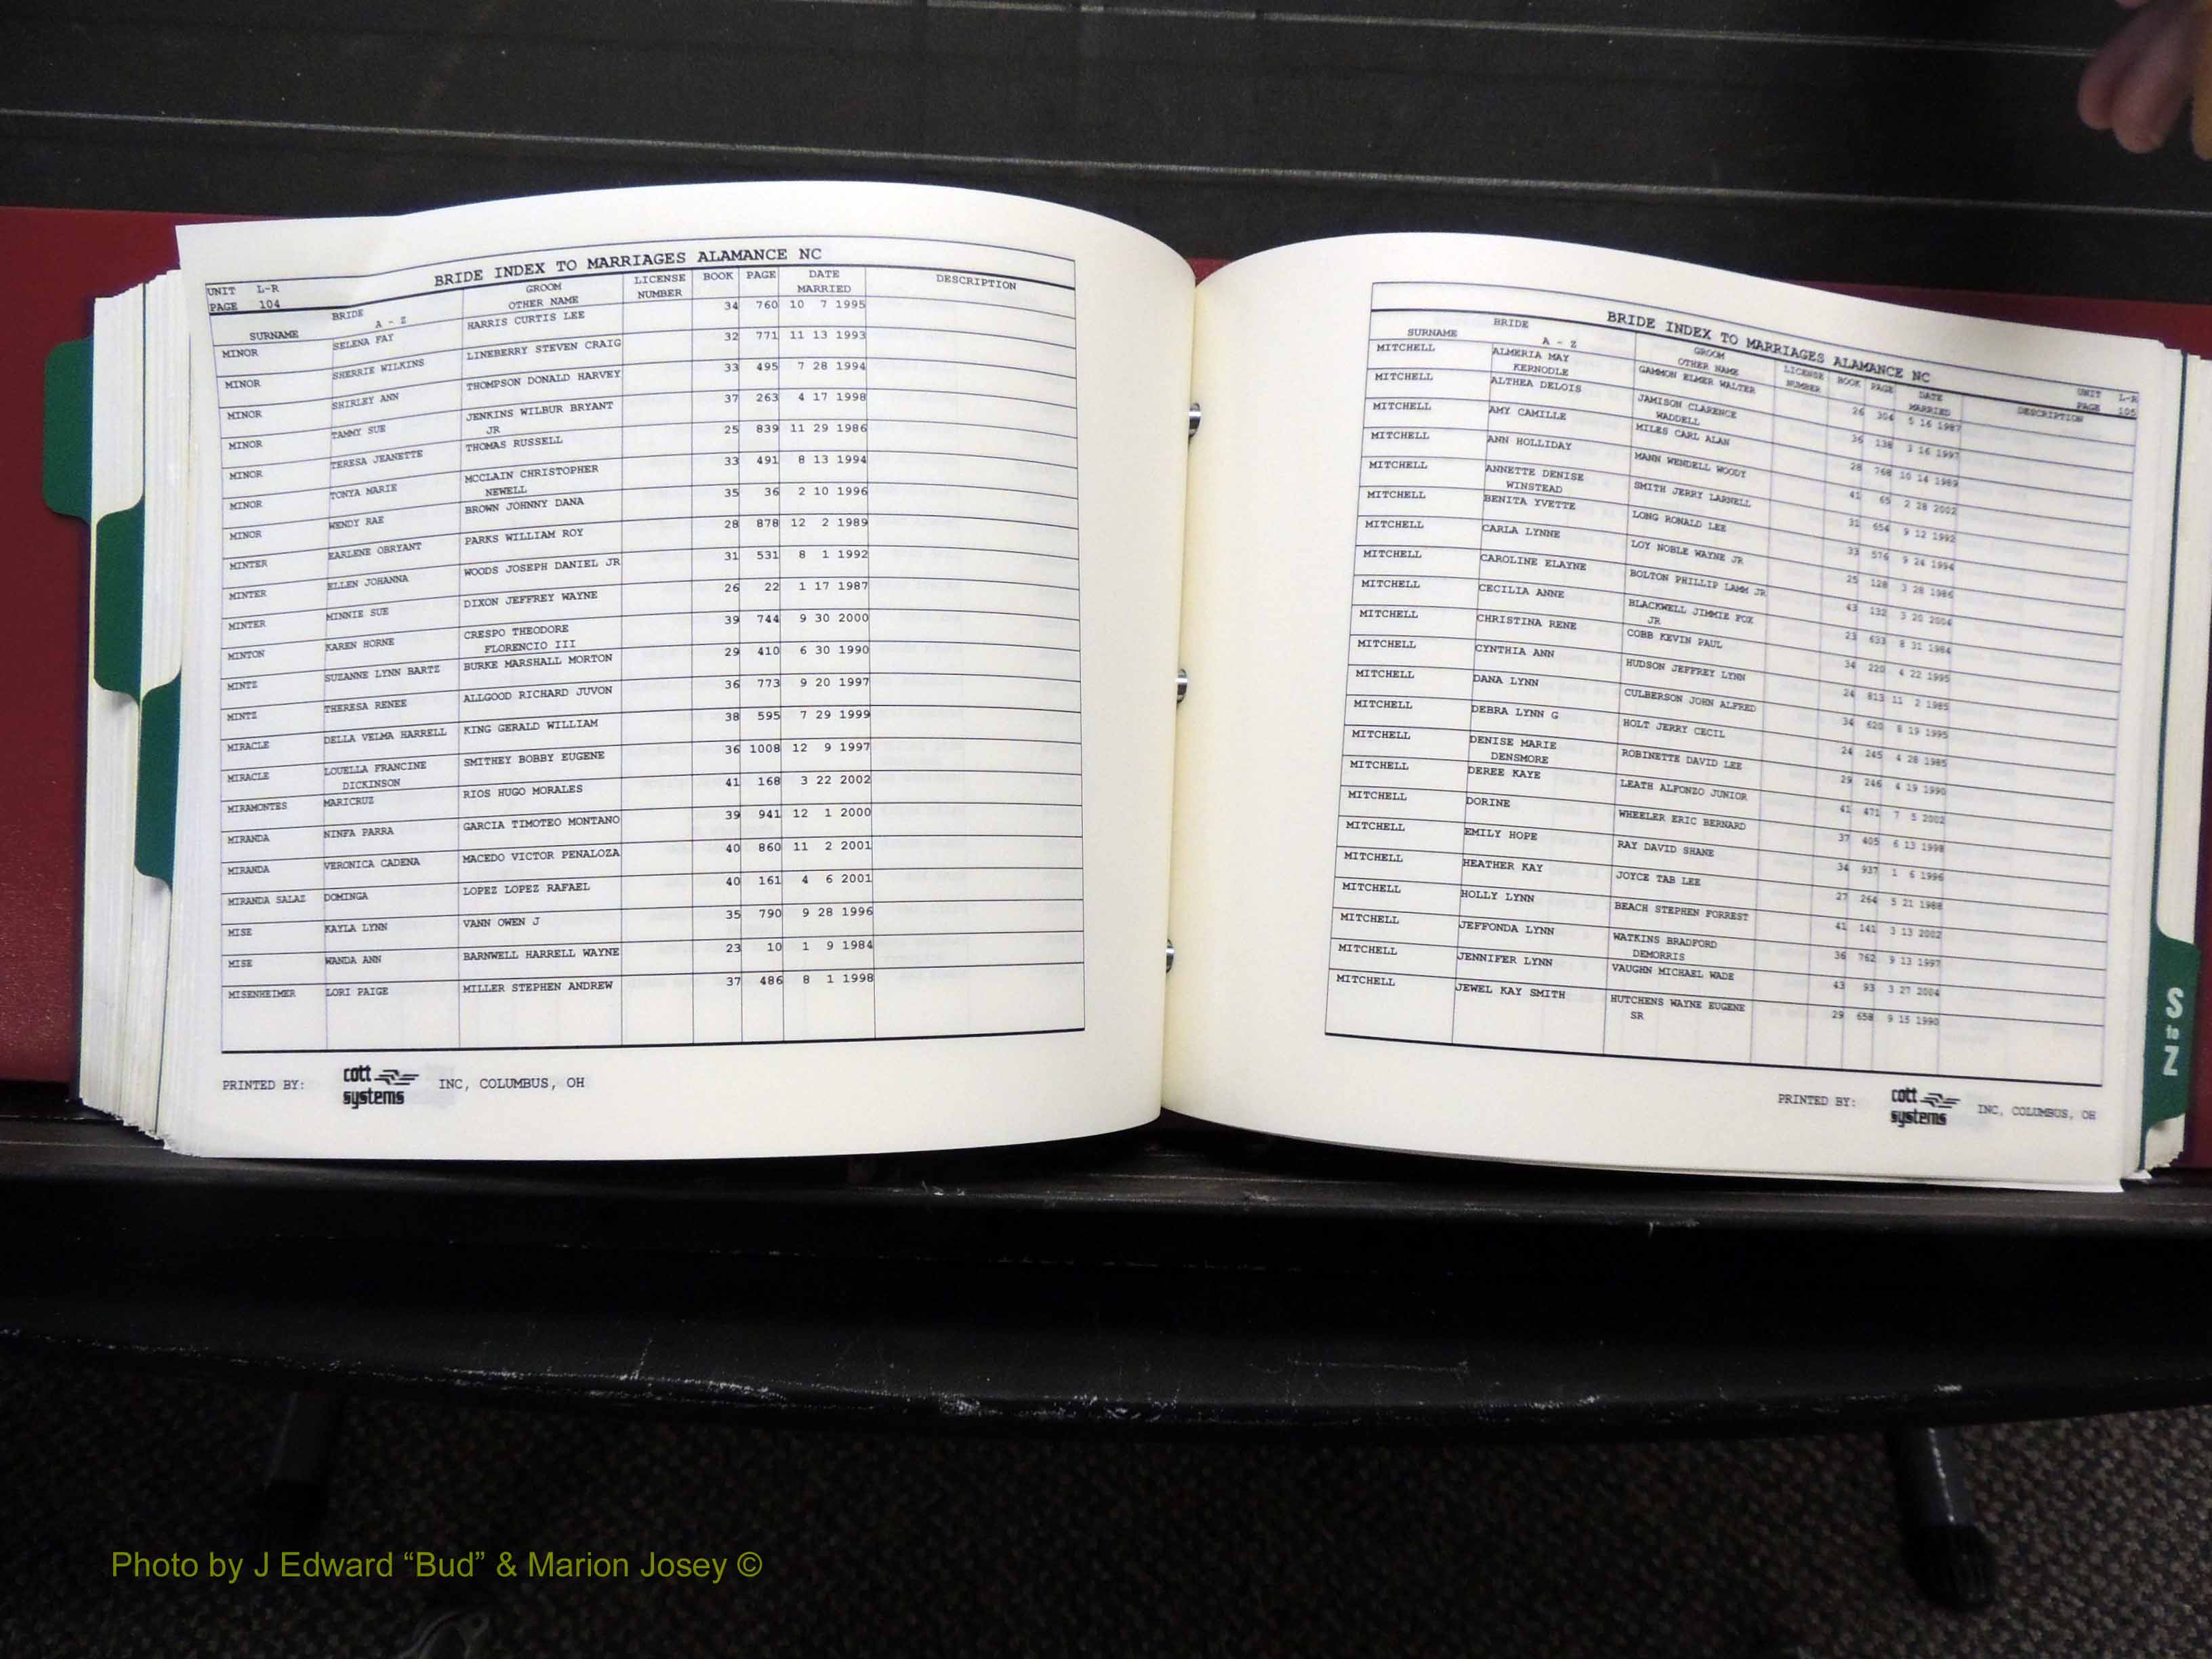 BRIDE INDEX TO MARRIAGES ALAMANCE NC
UNIT L-R
PAGE 104
SURNAME BRIDE A - Z GROOM OTHER NAME LICENSE NUMBER BOOK PAGE DATE MARRIED DESCRIPTION
MINOR SELENA FAY HARRIS CURTIS LEE 34 760 10 7 1995
MINOR SHERRIE WILKINS LINEBERRY STEVEN CRAIG 32 771 11 13 1993
MINOR SHIRLEY ANN THOMPSON DONALD HARVEY 33 495 7 28 1994
MINOR TAMMY SUE JENKINS WILBUR BRYANT JR 37 263 4 17 1998
MINOR TERESA JEANETTE THOMAS RUSSELL 25 839 11 29 1986
MINOR TONYA MARIE MCCLAIN CHRISTOPHER NEWELL 33 491 8 13 1994
MINOR WENDY RAE BROWN JOHNNY DANA 35 36 2 10 1996
MINTER EARLENE OBRYANT PARKS WILLIAM ROY 28 878 12 2 1989
MINTER ELLEN JOHANNA WOODS JOSEPH DANIEL JR 31 531 8 1 1992
MINTER MINNIE SUE DIXON JEFFREY WAYNE 26 22 1 17 1987
MINTON KAREN HORNE CRESPO THEODORE FLORENCIO III 39 744 9 30 2000
MINTZ SUZANNE LYNN BARTZ BURKE MARSHALL MORTON 29 410 6 30 1990
MINTZ THERESA RENEE ALLGOOD RICHARD JUVON 36 773 9 20 1997
MIRACLE DELLA VELMA HARRELL KING GERALD WILLIAM 38 595 7 29 1999
MIRACLE LOUELLA FRANCINE DICKINSON SMITHEY BOBBY EUGENE 36 1008 12 9 1997
MIRAMONTES MARICRUZ RIOS HUGO MORALES 41 168 3 22 2002
MIRANDA NINFA PARRA GARCIA TIMOTEO MONTANO 39 941 12 1 2000
MIRANDA VERONICA CADENA MACEDO VICTOR PENALOZA 40 860 11 2 2001
MIRANDA SALAZ DOMINGA LOPEZ LOPEZ RAFAEL 40 161 4 6 2001
MISE KAYLA LYNN VANN OWEN J 35 790 9 28 1996
MISE WANDA ANN BARNWELL HARRELL WAYNE 23 10 1 9 1984
MISENHEIMER LORI PAIGE MILLER STEPHEN ANDREW 37 486 8 1 1998
PRINTED BY: cott systems INC, COLUMBUS, OH
BRIDE INDEX TO MARRIAGES ALAMANCE NC
UNIT L-R
PAGE 105
SURNAME BRIDE A - Z GROOM OTHER NAME LICENSE NUMBER BOOK PAGE DATE MARRIED DESCRIPTION
MITCHELL ALMERIA MAY KERNODLE GAMMON ELMER WALTER 26 304 5 16 1987
MITCHELL ALTHEA DELOIS JAMISON CLARENCE WADDELL 36 138 3 16 1997
MITCHELL AMY CAMILLE MILES CARL ALAN 28 768 10 14 1989
MITCHELL ANN HOLLIDAY MANN WENDELL WOODY 41 65 2 28 2002
MITCHELL ANNETTE DENISE WINSTEAD SMITH JERRY LARNELL 31 654 9 12 1992
MITCHELL BENITA YVETTE LONG RONALD LEE 33 576 9 24 1994
MITCHELL CARLA LYNNE LOY NOBLE WAYNE JR 25 128 3 28 1986
MITCHELL CAROLINE ELAYNE BOLTON PHILLIP LAMM JR 43 132 3 20 2004
MITCHELL CECILIA ANNE BLACKWELL JIMMIE FOX JR 23 633 8 31 1984
MITCHELL CHRISTINA RENE COBB KEVIN PAUL 34 220 4 22 1995
MITCHELL CYNTHIA ANN HUDSON JEFFREY LYNN 24 813 11 2 1985
MITCHELL DANA LYNN CULBERSON JOHN ALFRED 34 620 8 19 1995
MITCHELL DEBRA LYNN G HOLT JERRY CECIL 24 245 4 28 1985
MITCHELL DENISE MARIE DENSMORE ROBINETTE DAVID LEE 29 246 4 19 1990
MITCHELL DEREE KAYE LEATH ALFONZO JUNIOR 41 471 7 5 2002
MITCHELL DORINE WHEELER ERIC BERNARD 37 405 6 13 1998
MITCHELL EMILY HOPE RAY DAVID SHANE 34 937 1 6 1996
MITCHELL HEATHER KAY JOYCE TAB LEE 27 264 5 21 1988
MITCHELL HOLLY LYNN BEACH STEPHEN FORREST 41 141 3 13 2002
MITCHELL JEFFONDA LYNN WATKINS BRADFORD DEMORRIS 36 762 9 13 1997
MITCHELL JENNIFER LYNN VAUGHN MICHAEL WADE 43 93 3 27 2004
MITCHELL JEWEL KAY SMITH HUTCHENS WAYNE EUGENE SR 29 658 9 15 1990
PRINTED BY: cott systems INC, COLUMBUS, OH
S to Z
Photo by J Edward “Bud” & Marion Josey ©